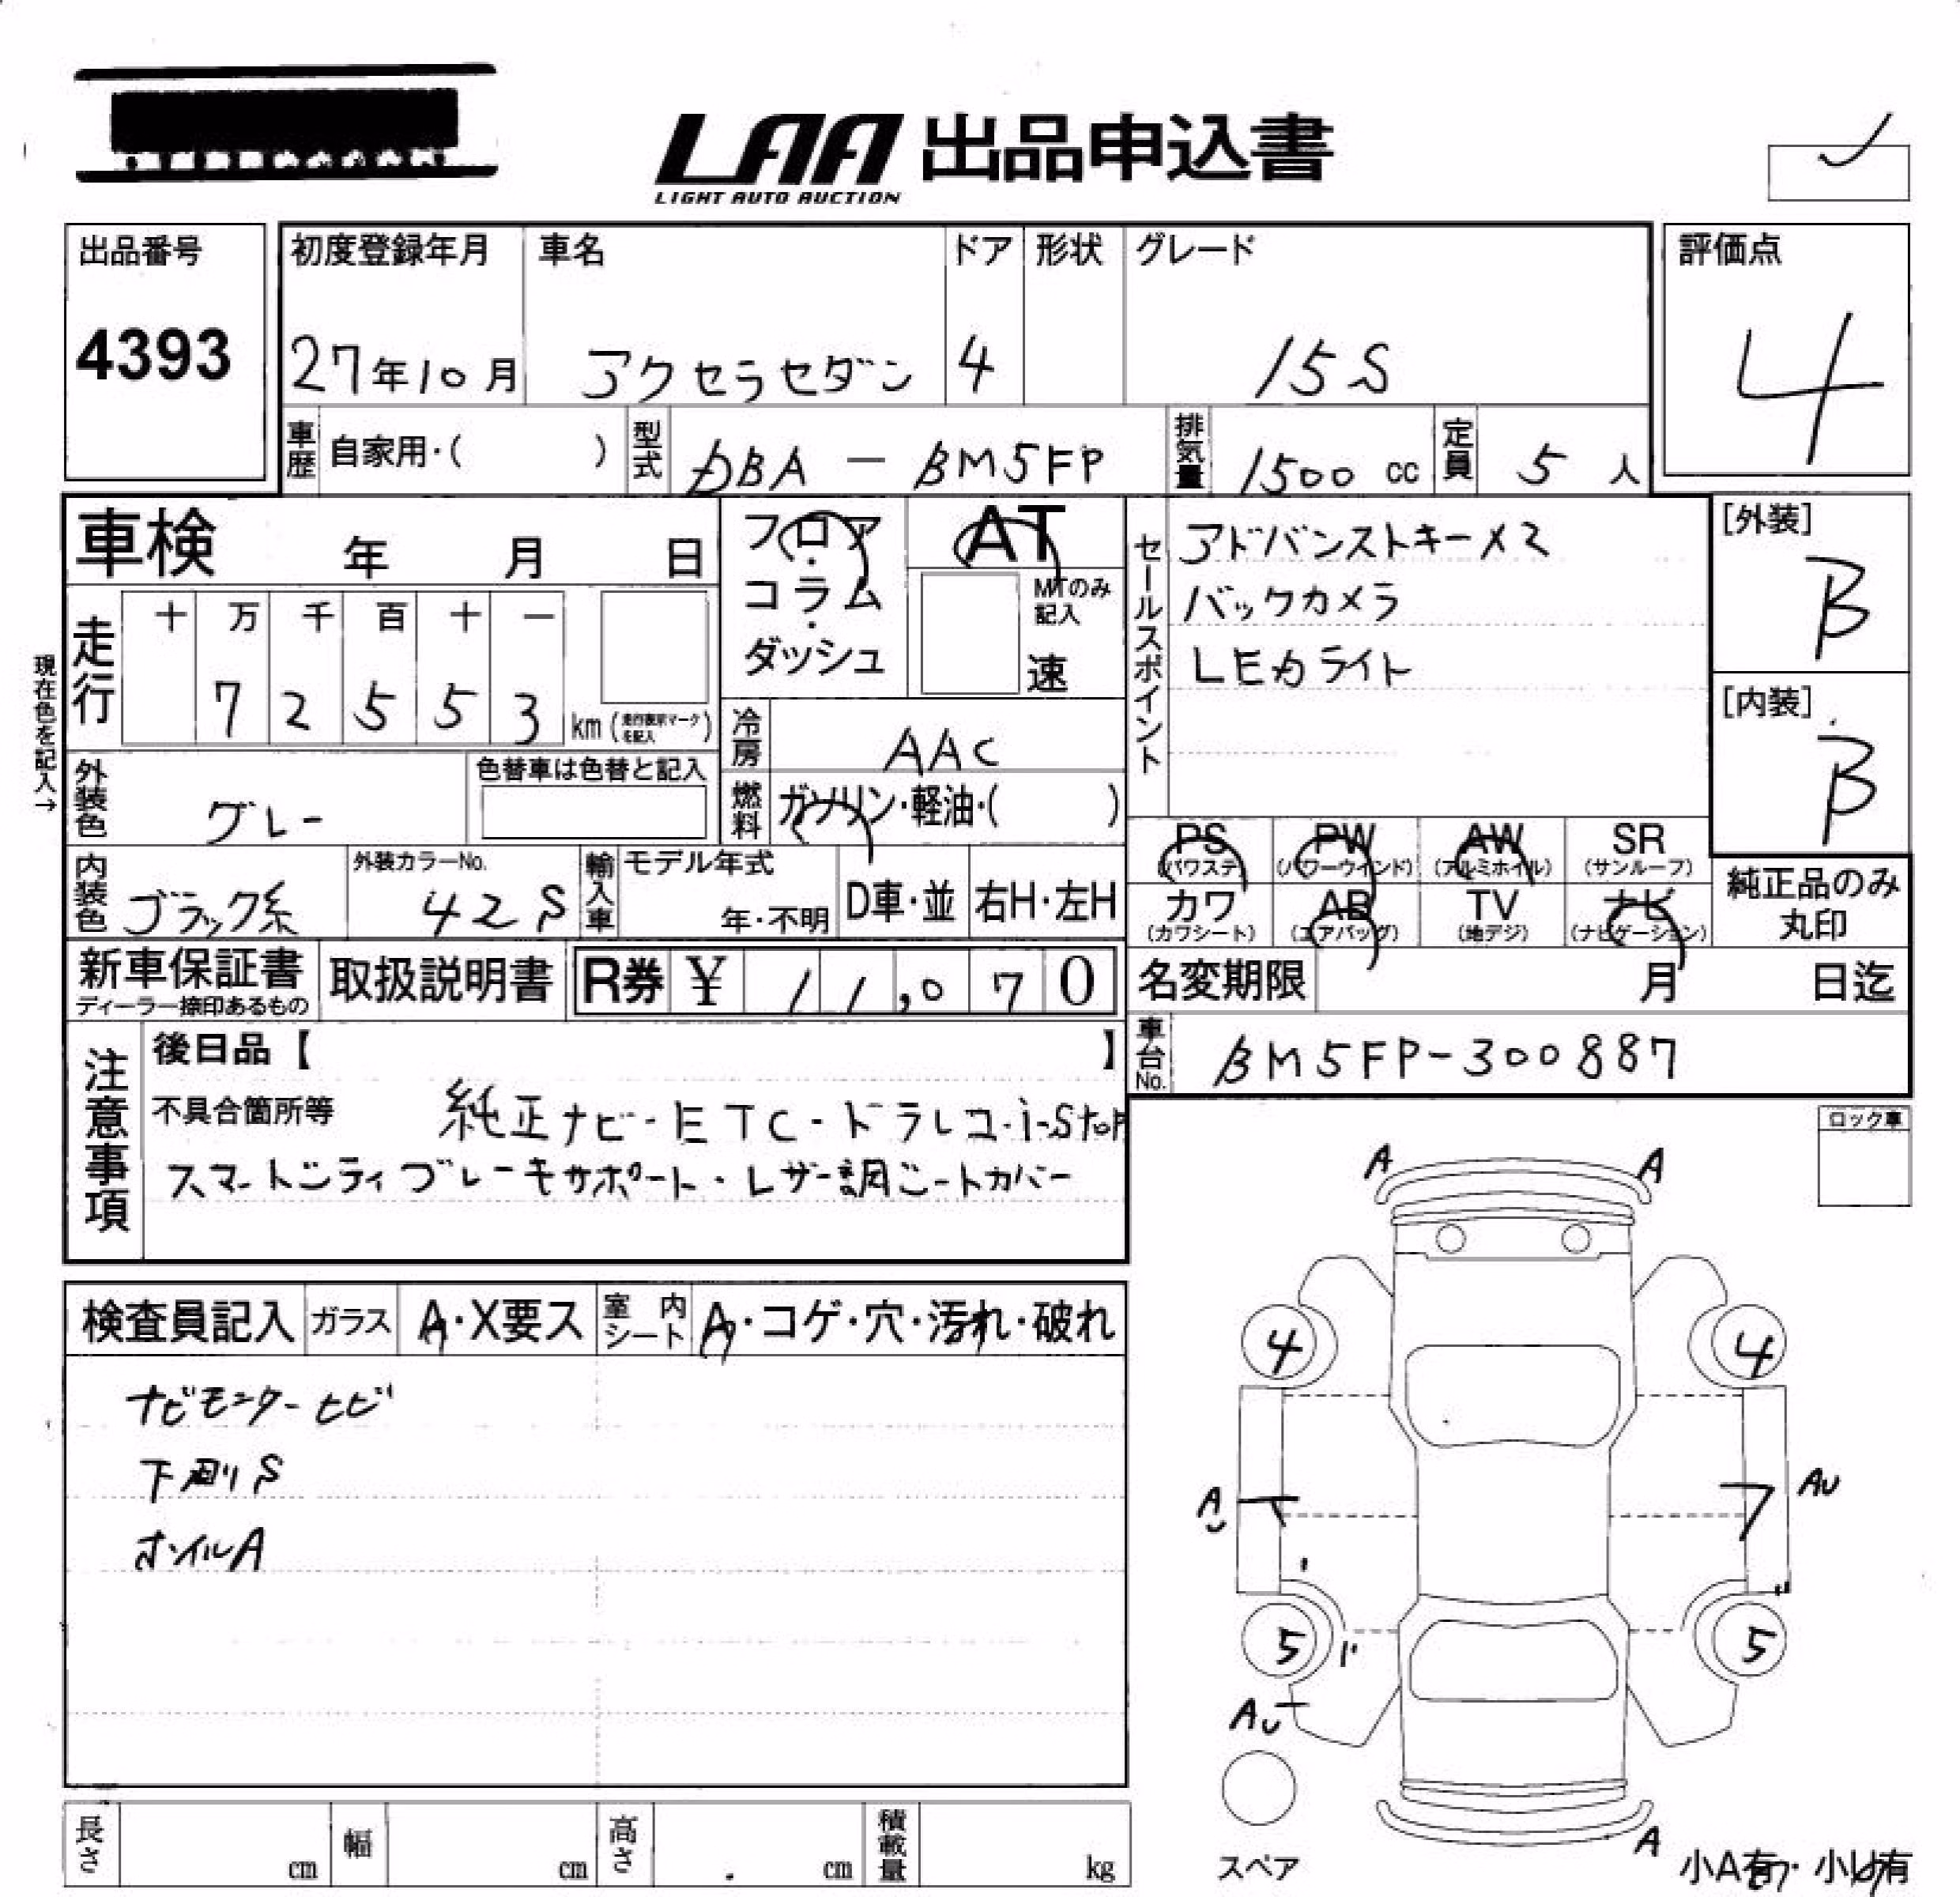 LAA 出品申込書
LIGHT AUTO AUCTION
出品番号
4393
初度登録年月
27年10月
車名
アクセラセダン
ドア
4
形状
グレード
15S
評価点
4
車歴 自家用・( )
型式 DBA - BM5FP
排気量 1500 cc
定員 5 人
車検 年 月 日
フロア・コラム・ダッシュ
AT
MTのみ記入
速
セールスポイント
アドバンストキーX2
バックカメラ
LEDライト
[外装]
B
[内装]
B
現在色を記入→
走行
十 万 千 百 十 一
7 2 5 5 3 km (走行表示マークを記入)
冷房 AAC
燃料 ガソリン・軽油・( )
外装色 グレー
色替車は色替と記入
内装色 ブラック系
外装カラーNo.
42S
輸入車
モデル年式
年・不明
D車・並
右H・左H
PS (パワステ)
PW (パワーウインド)
AW (アルミホイル)
SR (サンルーフ)
カワ (カワシート)
AB (エアバッグ)
TV (地デジ)
ナビ (ナビゲーション)
純正品のみ
丸印
新車保証書
ディーラー捺印あるもの
取扱説明書
R券 ¥ 11,070
名変期限 月 日迄
車台No. BM5FP-300887
注意事項
後日品【 】
不具合箇所等 純正ナビ・ETC・ドラレコ・i-Stop
スマートシティブレーキサポート・レザー調シートカバー
ロック車
検査員記入
ガラス A・X要ス
室内シート A・コゲ・穴・汚れ・破れ
ナビモニターヒビ
下廻りS
ホイルA
A A
4 4
A AU
5 5
AU
スペア
A
小A有・小U有
長さ cm
幅 cm
高さ cm
積載量 kg